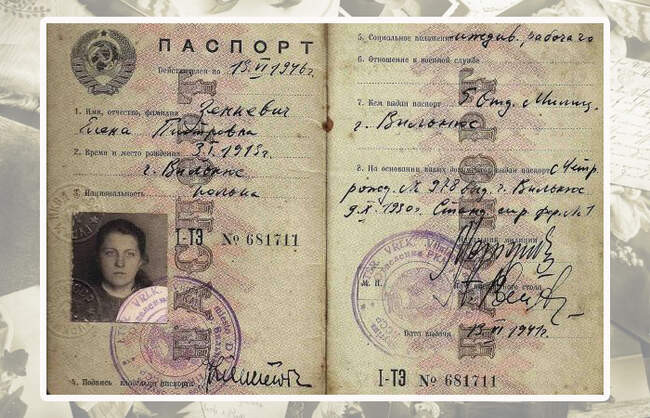 ПАСПОРТ
Действителен по 13.VI 1946г.
1. Имя, отчество, фамилия Зенкевич
Елена Пиотровна
2. Время и место рождения 3.I.1913г.
г. Вильнюс
3. Национальность полька
I-ТЭ № 681711
4. Подпись владельца паспорта
5. Социальное положение иждив. рабочего
6. Отношение к военной службе
7. Кем выдан паспорт 5 Отд. Милиц.
г. Вильнюс
8. На основании каких документов выдан паспорт
рожд. № 978 выд. г. Вильнюс
9.X.1930г.
М. П.
Дата выдачи 13.VI 1941г.
I-ТЭ № 681711
ПАСПОРТ